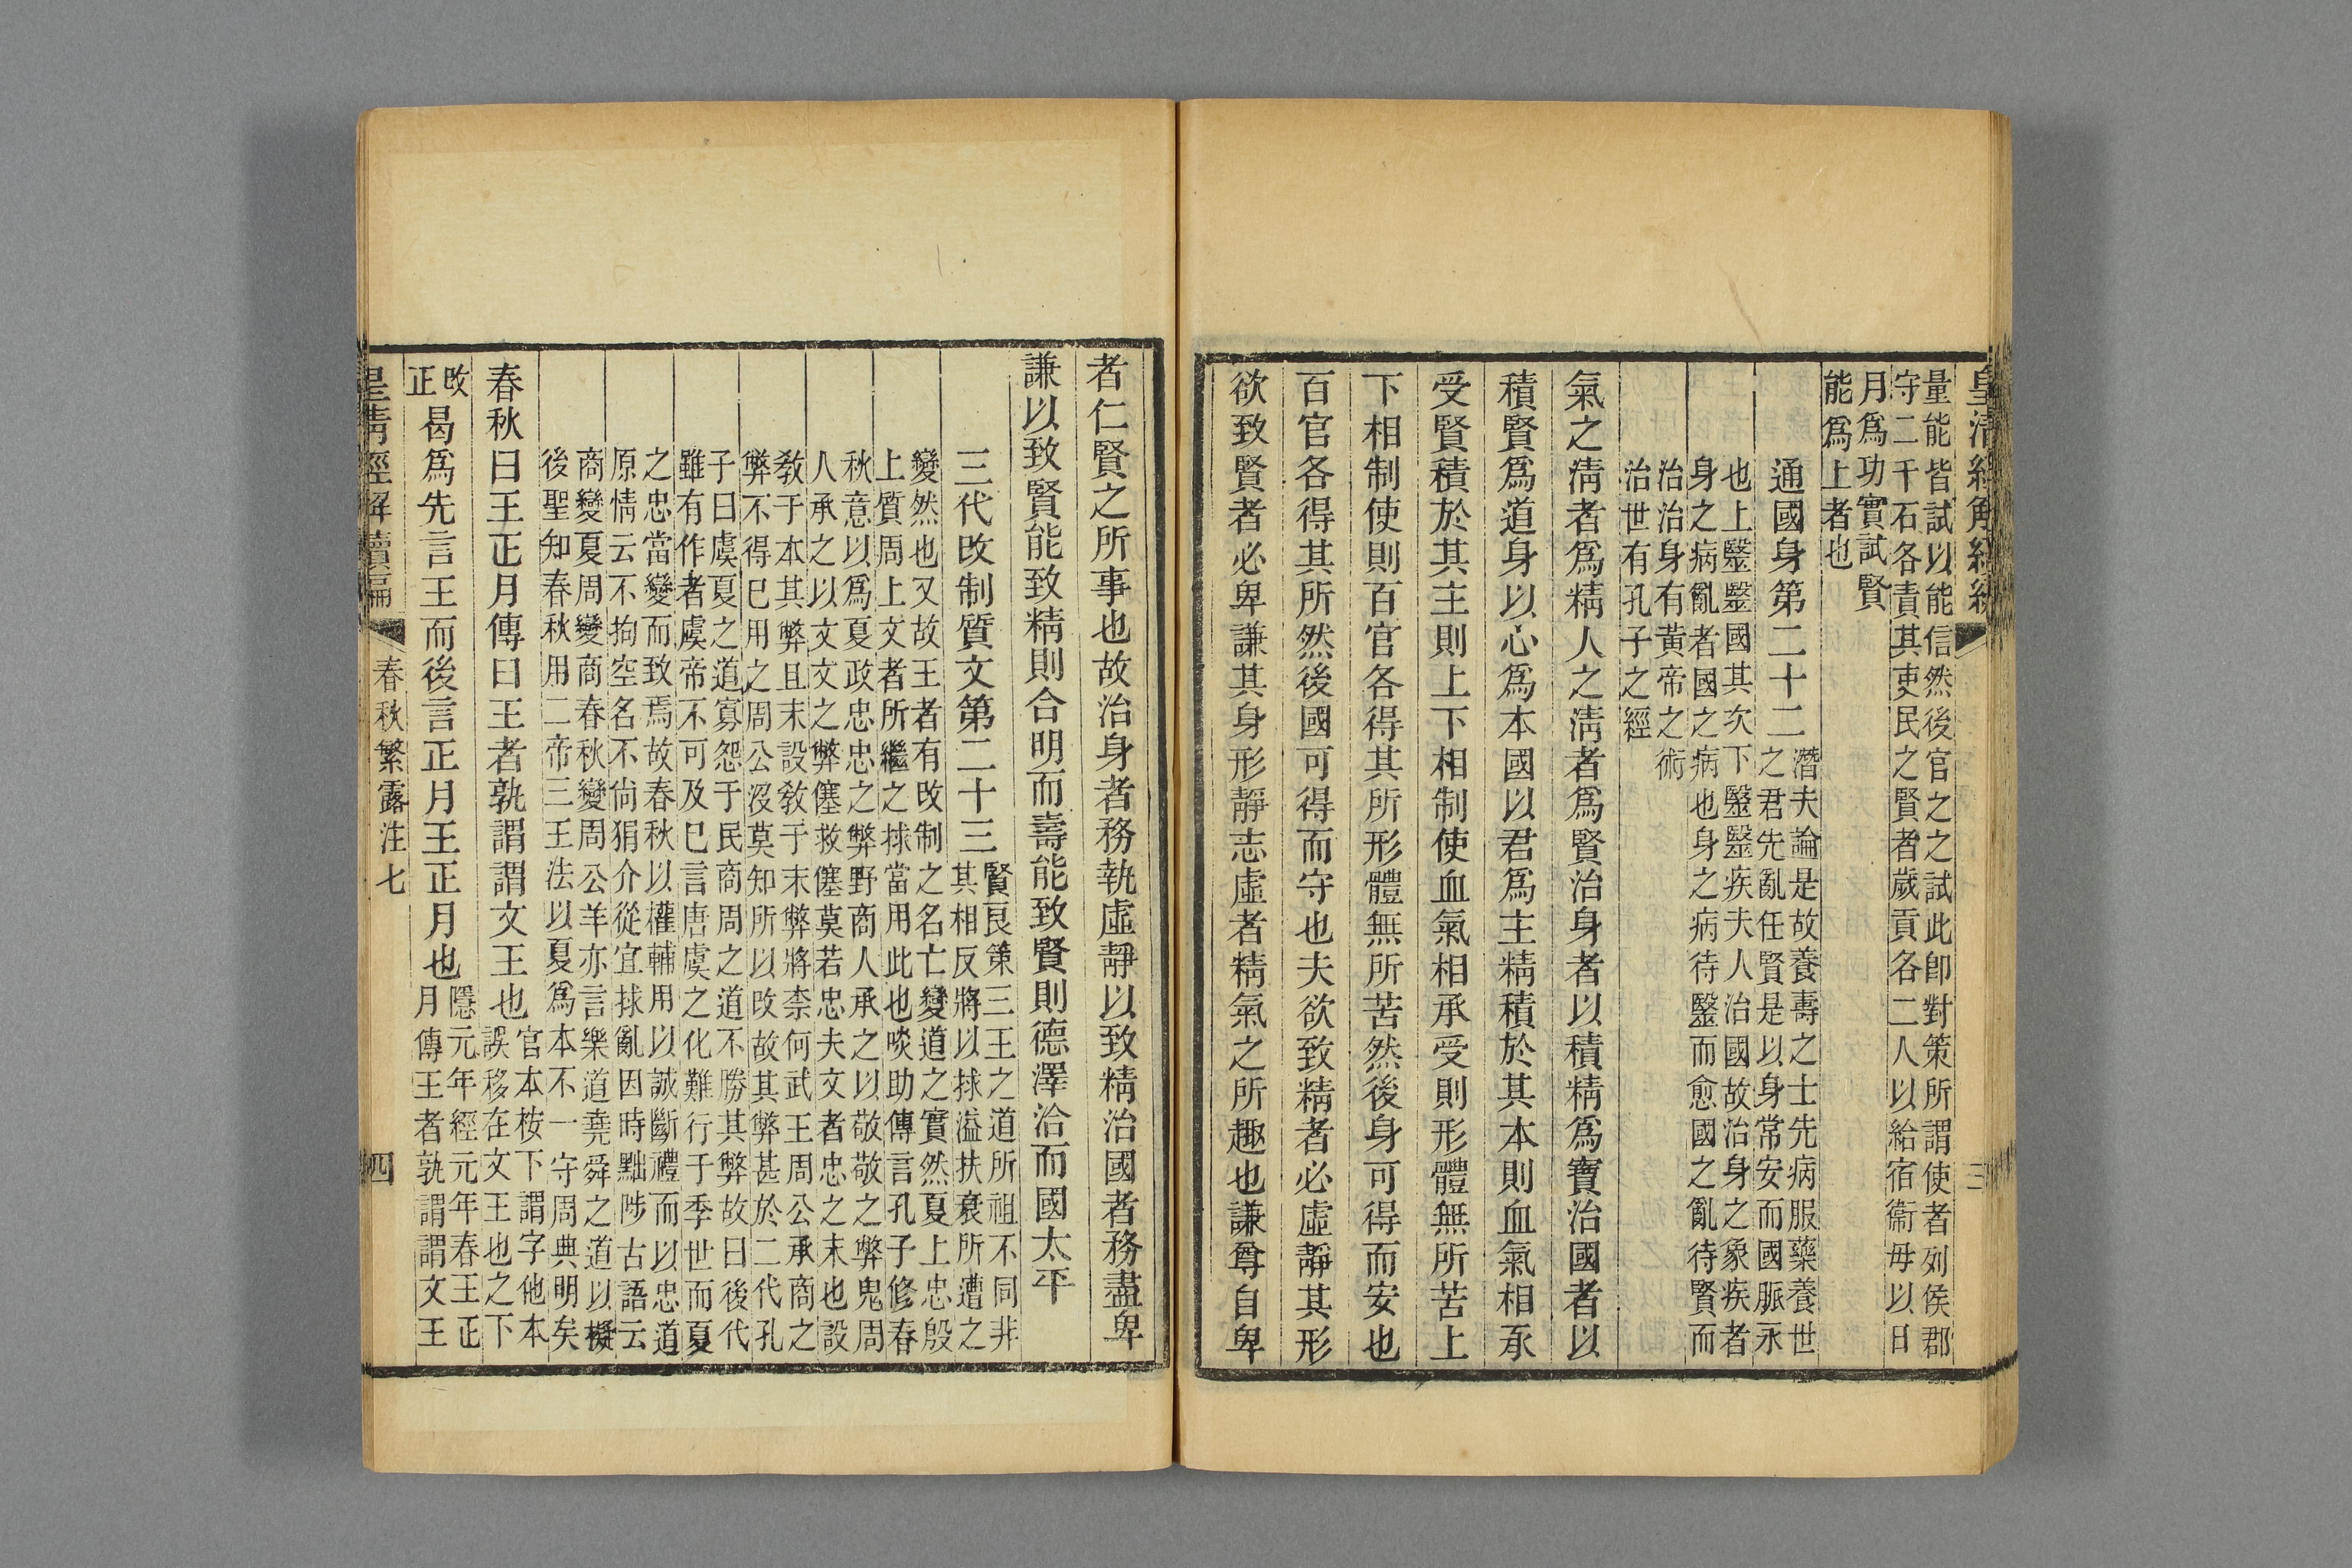 皇清經解續編 三
量能皆試以能信然後官之之試此卽對策所謂使者列侯郡
守二千石各責其吏民之賢者歲貢各二人以給宿衞毋以日
月爲功實試賢
能爲上者也
通國身第二十二
潛夫論是故養壽之士先病服藥養世
之君先亂任賢是以身常安而國脈永
也上毉毉國其次下毉毉疾夫人治國故治身之象疾者
身之病亂者國之病也身之病待毉而愈國之亂待賢而
治治身有黃帝之術
治世有孔子之經
氣之淸者爲精人之淸者爲賢治身者以積精爲寶治國者以
積賢爲道身以心爲本國以君爲主精積於其本則血氣相承
受賢積於其主則上下相制使血氣相承受則形體無所苦上
下相制使則百官各得其所形體無所苦然後身可得而安也
百官各得其所然後國可得而守也夫欲致精者必虛靜其形
欲致賢者必卑謙其身形靜志虛者精氣之所趣也謙尊自卑
者仁賢之所事也故治身者務執虛靜以致精治國者務盡卑
謙以致賢能致精則合明而壽能致賢則德澤洽而國太平
三代改制質文第二十三
賢良策三王之道所祖不同非
其相反將以捄溢扶衰所遭之
變然也又故王者有改制之名亡變道之實然夏上忠殷
上質周上文者所繼之捄當用此也啖助傳言孔子修春
秋意以爲夏政忠忠之弊野商人承之以敬敬之弊鬼周
人承之以文文之弊僿救僿莫若忠夫文者忠之末也設
敎于本其弊且末設敎于末弊將柰何武王周公承商之
弊不得已用之周公沒莫知所以改故其弊甚於二代孔
子曰虞夏之道寡怨于民商周之道不勝其弊故曰後代
雖有作者虞帝不可及已言唐虞之化難行于季世而夏
之忠當變而致焉故春秋以權輔用以誠斷禮而以忠道
原情云不拘空名不尙狷介從宜捄亂因時黜陟古語云
商變夏周變商春秋變周公羊亦言樂道堯舜之道以擬
後聖知春秋用二帝三王法以夏爲本不一守周典明矣
春秋曰王正月傳曰王者孰謂謂文王也
官本桉下謂字他本
誤移在文王也之下
曷爲先言王而後言正月王正月也
改
正
隱元年經元年春王正
月傳王者孰謂謂文王
皇淸經解續編 春秋繁露注七 四